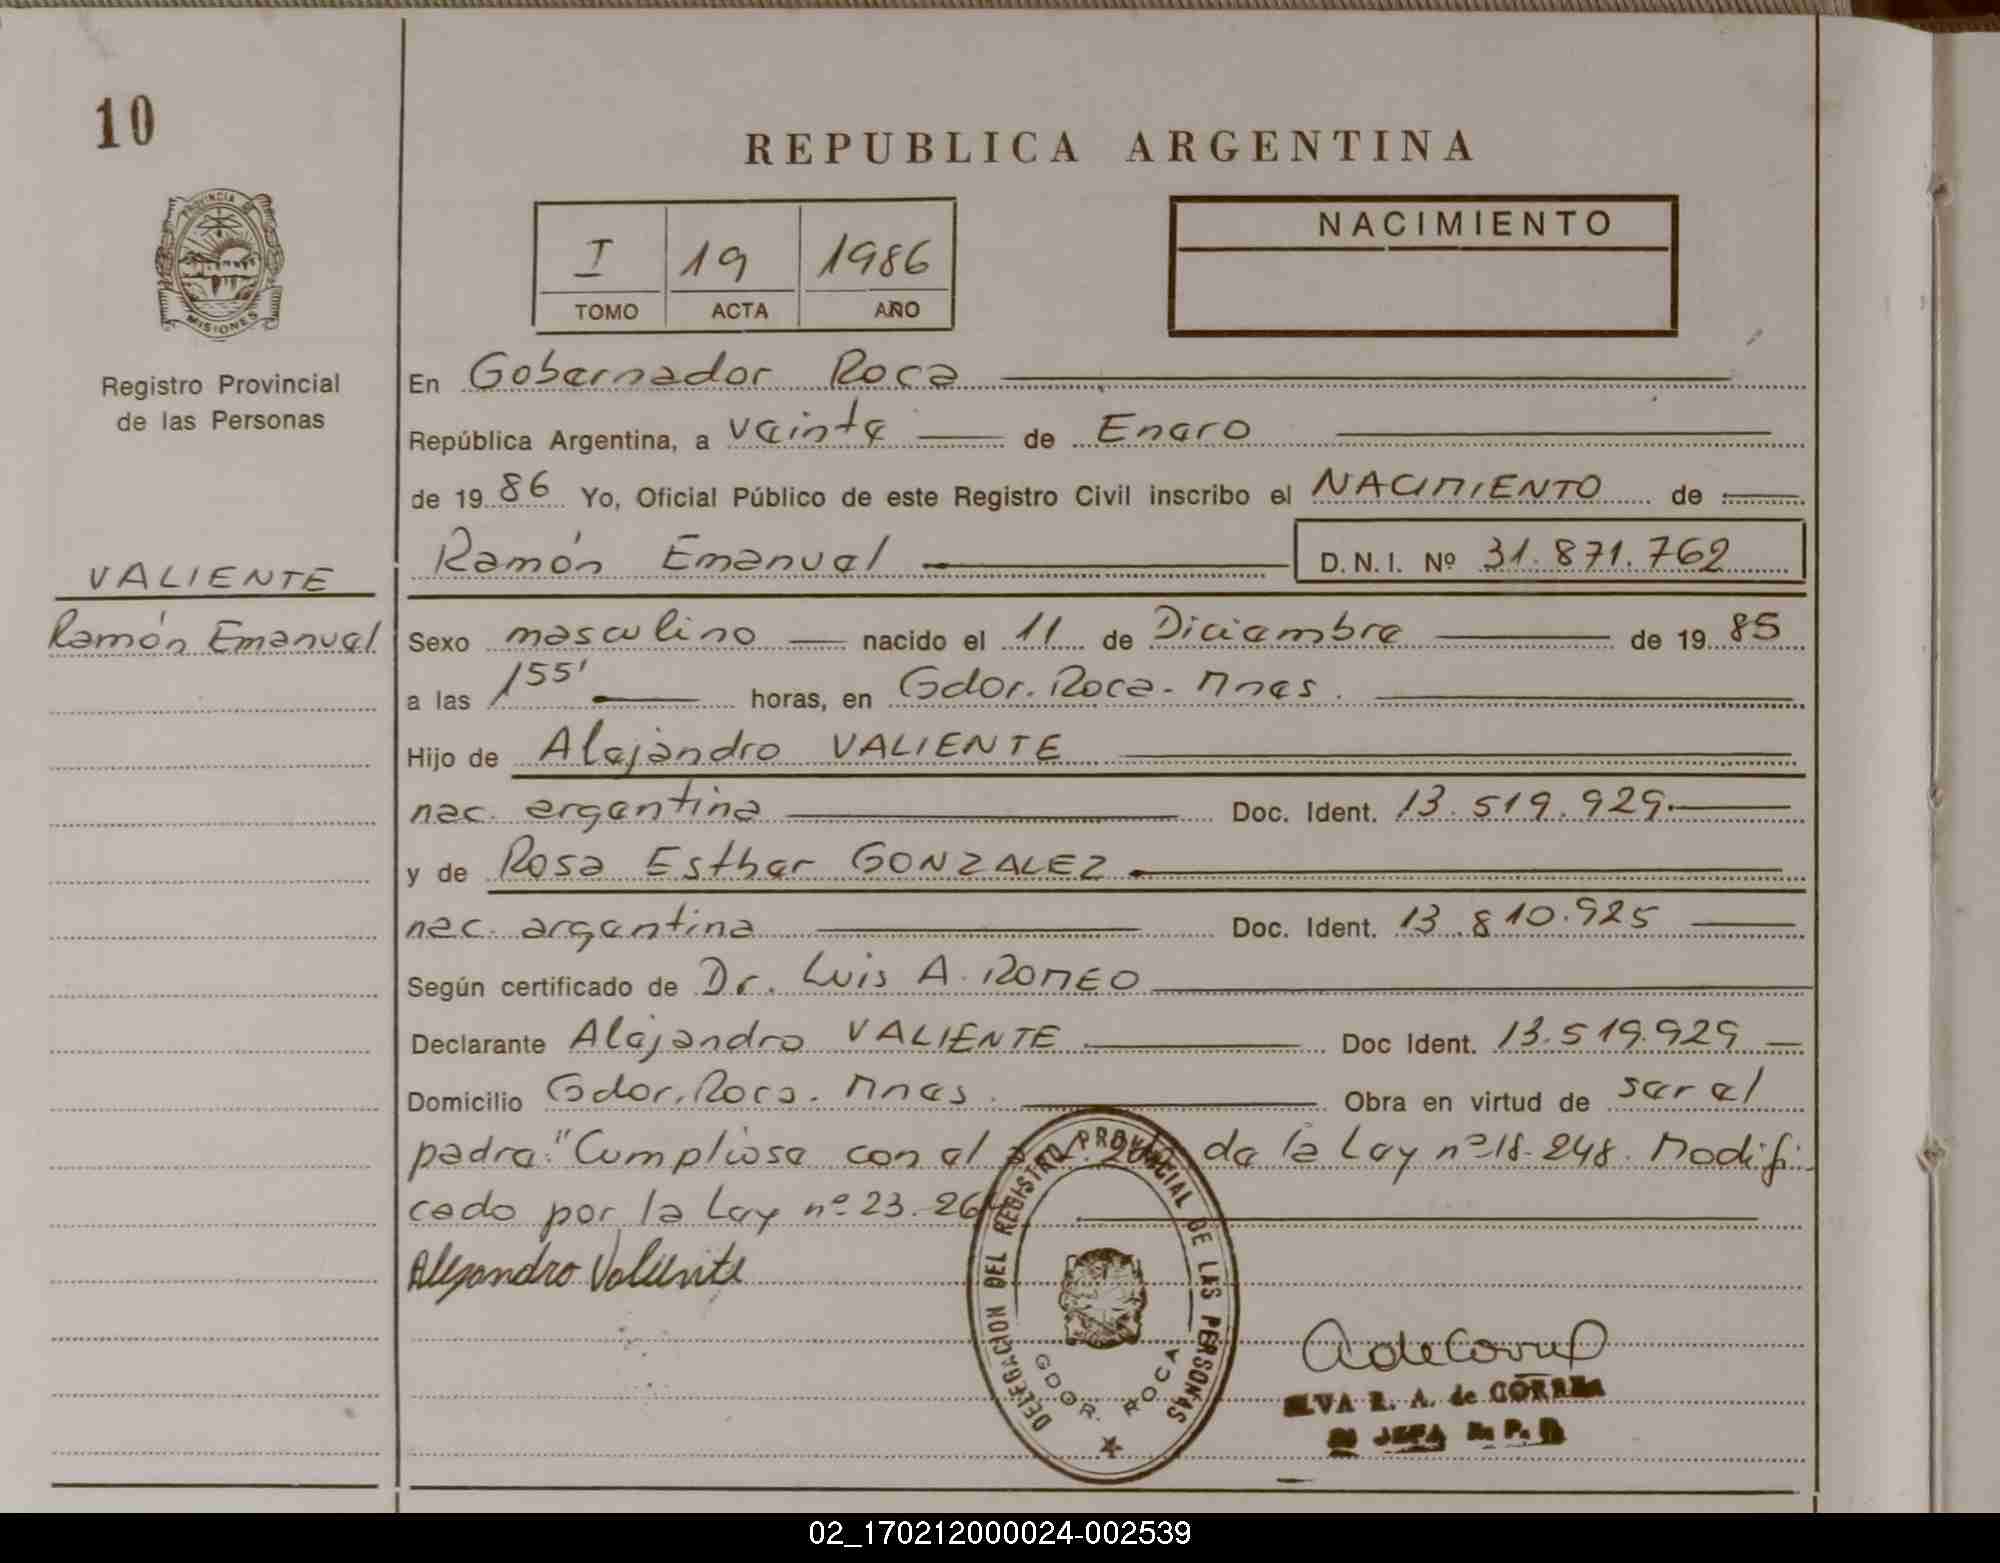 10
REPUBLICA ARGENTINA
PROVINCIA DE
MISIONES
I 19 1986
TOMO ACTA AÑO
NACIMIENTO
Registro Provincial
de las Personas
En Gobernador Roca
República Argentina, a veinte de Enero
de 1986 Yo, Oficial Público de este Registro Civil inscribo el NACIMIENTO de
VALIENTE
Ramón Emanuel
Ramón Emanuel D.N.I. Nº 31.871.762
Sexo masculino nacido el 11 de Diciembre de 1985
a las 155' horas, en Gdor. Roca. Mnes.
Hijo de Alejandro VALIENTE
nac. argentina Doc. Ident. 13.519.929.
y de Rosa Esther GONZALEZ
nac. argentina Doc. Ident. 13.810.925
Según certificado de Dr. Luis A. ROMEO
Declarante Alejandro VALIENTE Doc Ident. 13.519.929
Domicilio Gdor. Roca. Mnes. Obra en virtud de ser el
padre. "Cumpliose con el de la Ley nº 18.248. Modifi
cado por la Ley nº 23.26
Alejandro Valiente
DELEGACION DEL REGISTRO PROVINCIAL DE LAS PERSONAS
GDOR. ROCA
A de Correa
ELVA R. A. de CORREA
JEFA R. P. P.
02_170212000024-002539